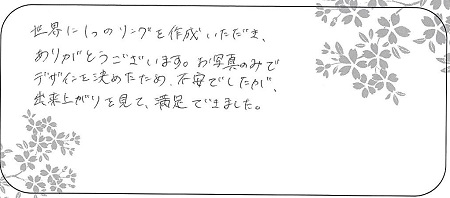 世界に1つのリングを作成いただき、
ありがとうございます。お写真のみで
デザインを決めたため、不安でしたが、
出来上がりを見て、満足できました。